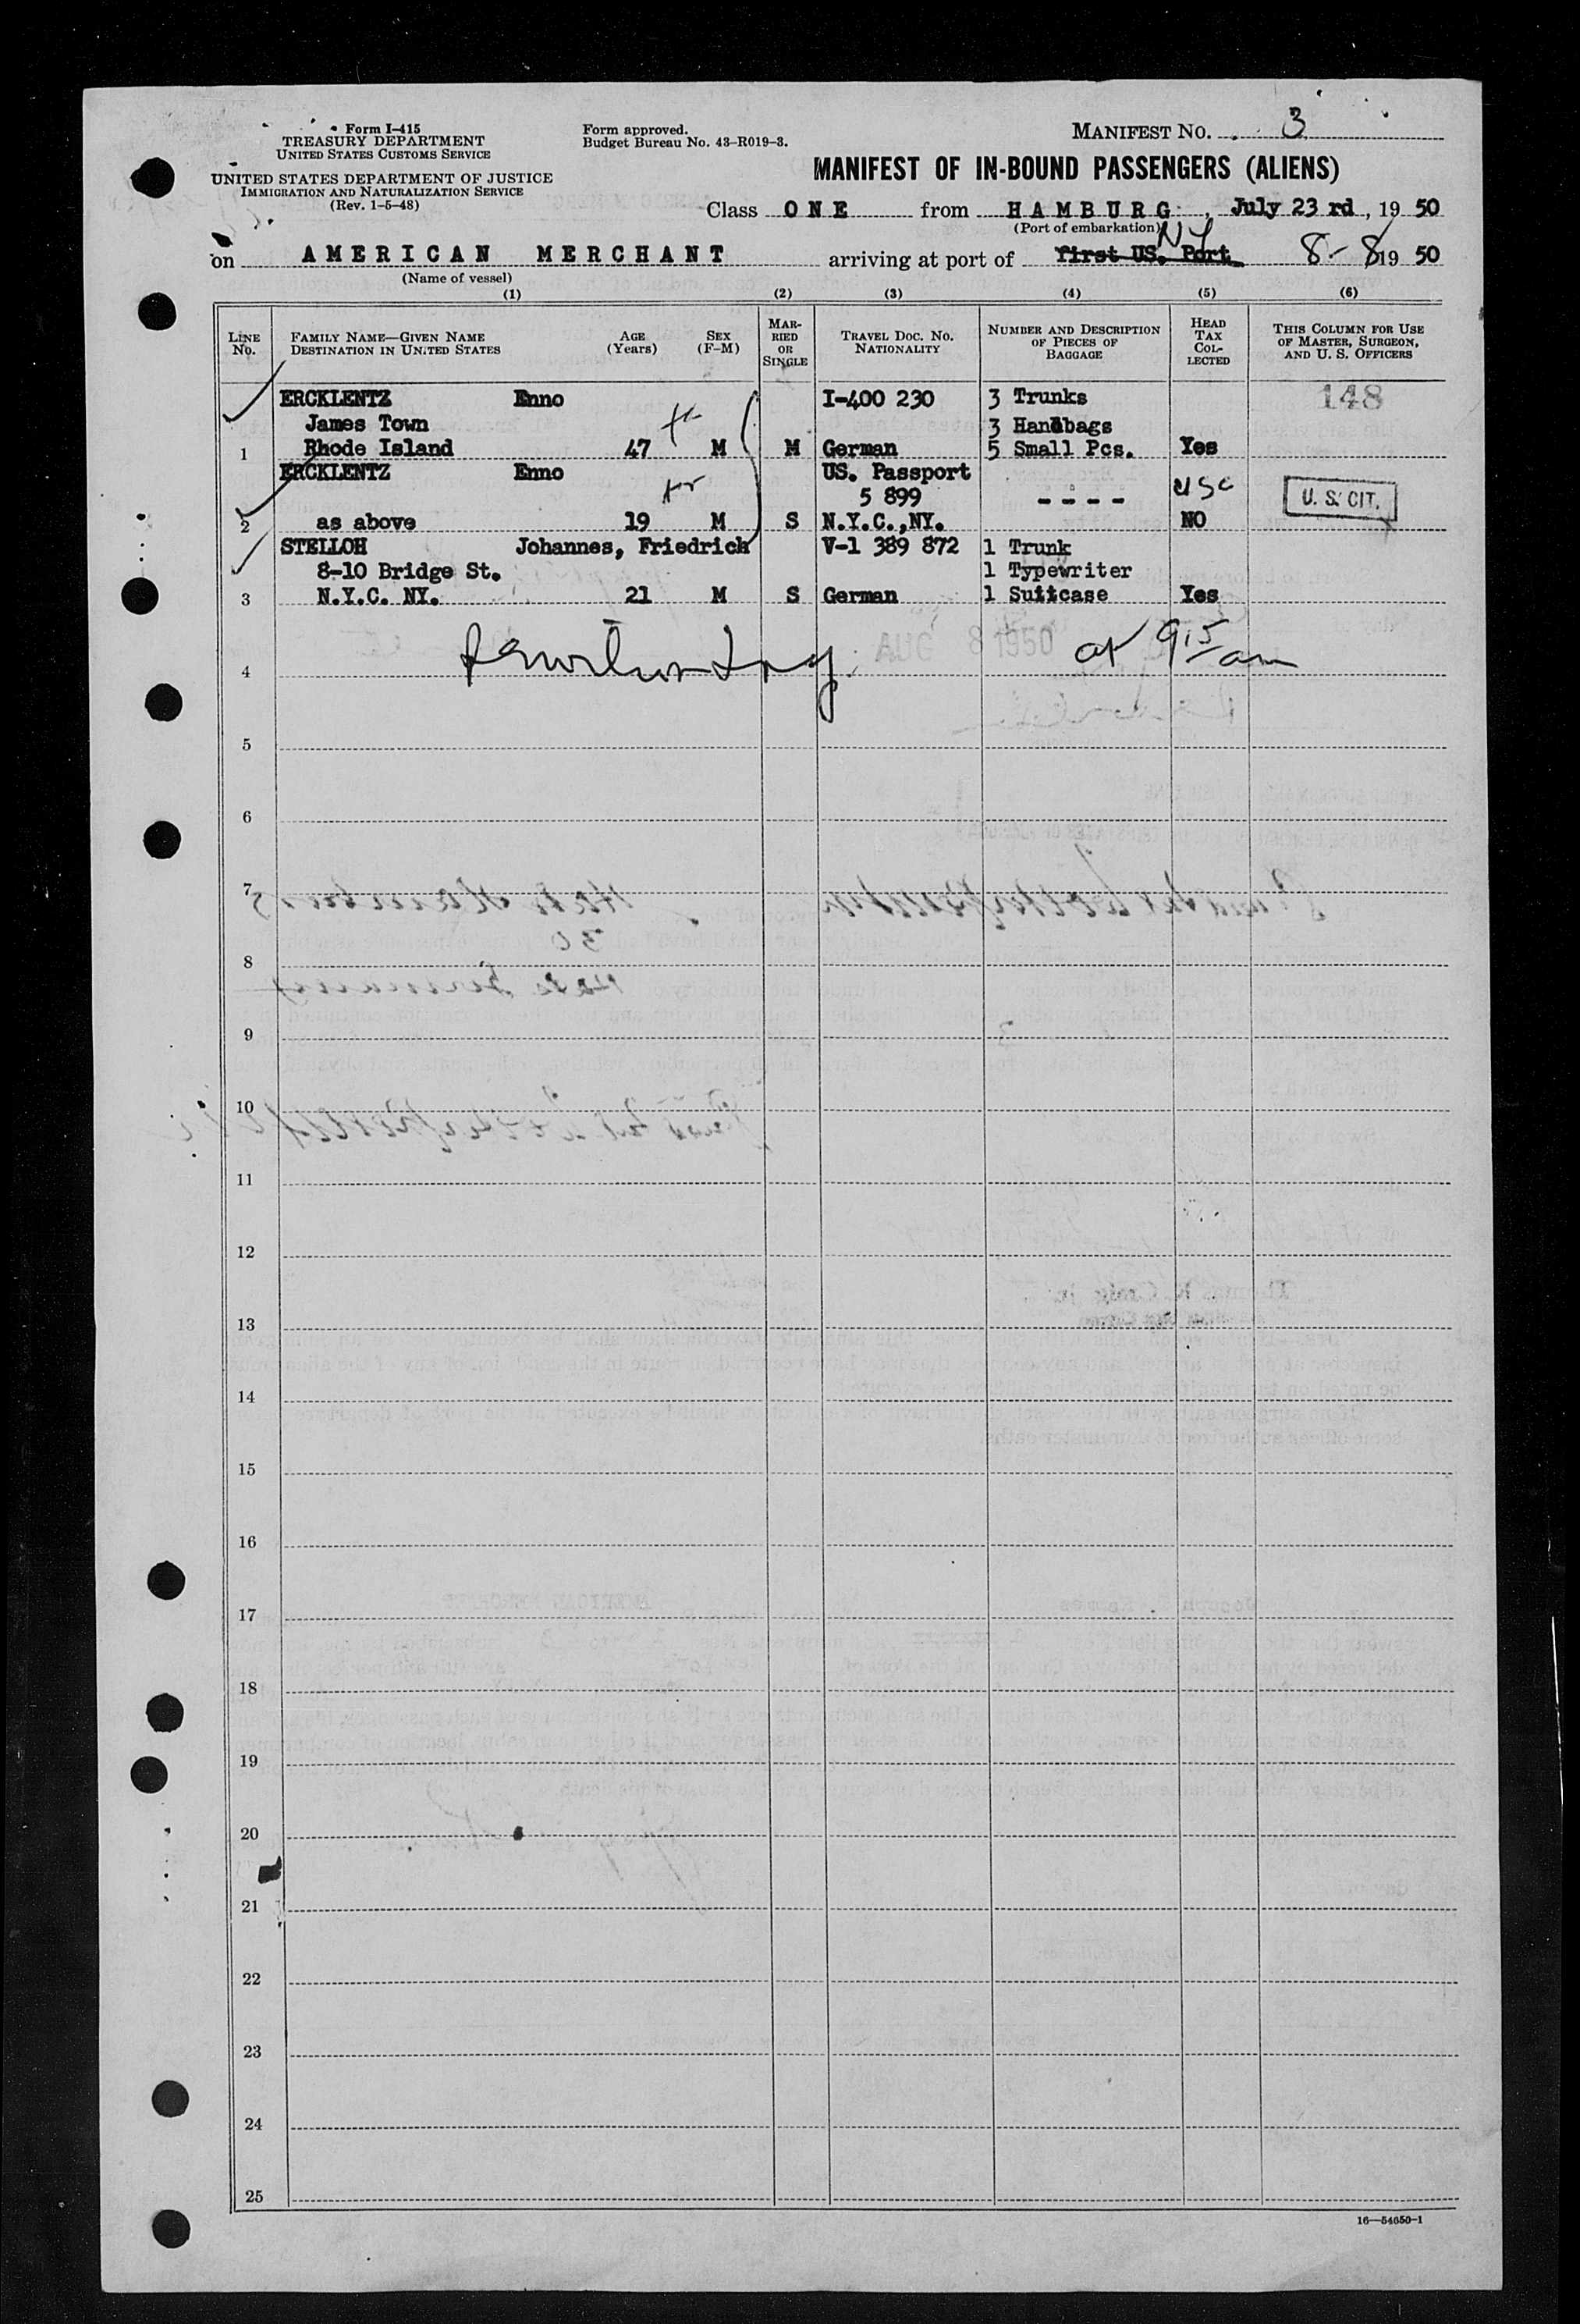 Form I-415
TREASURY DEPARTMENT
UNITED STATES CUSTOMS SERVICE
UNITED STATES DEPARTMENT OF JUSTICE
IMMIGRATION AND NATURALIZATION SERVICE
(Rev. 1-5-48)
Form approved.
Budget Bureau No. 43-R019-3.
MANIFEST NO. 3
MANIFEST OF IN-BOUND PASSENGERS (ALIENS)
Class ONE from HAMBURG, July 23 rd, 19 50
(Port of embarkation)
on AMERICAN MERCHANT arriving at port of first US. Port NY 8-8 19 50
(Name of vessel)
(1) (2) (3) (4) (5) (6)
LINE NO.
FAMILY NAME—GIVEN NAME
DESTINATION IN UNITED STATES
AGE (Years)
SEX (F-M)
MARRIED OR SINGLE
TRAVEL DOC. NO.
NATIONALITY
NUMBER AND DESCRIPTION OF PIECES OF BAGGAGE
HEAD TAX COLLECTED
THIS COLUMN FOR USE OF MASTER, SURGEON, AND U. S. OFFICERS
ERCKLENTZ Enno I-400 230 3 Trunks 148
James Town 3 Handbags
1 Rhode Island 47 M M German 5 Small Pcs. Yes
ERCKLENTZ Enno US. Passport
5 899 ---- USC U. S. CIT.
2 as above 19 M S N.Y.C.,NY. NO
STELLOH Johannes, Friedrich V-1 389 872 1 Trunk
8-10 Bridge St. 1 Typewriter
3 N.Y.C. NY. 21 M S German 1 Suitcase Yes
4 AUG 8 1950 at 915 am
5
6
7
8
9
10
11
12
13
14
15
16
17
18
19
20
21
22
23
24
25
16—54650-1